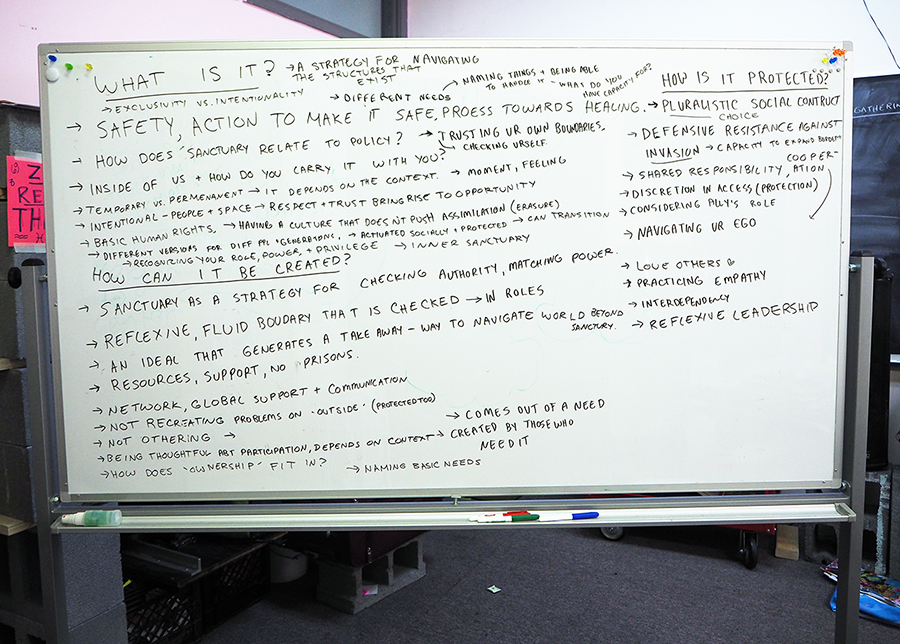 WHAT IS IT? → A STRATEGY FOR NAVIGATING
THE STRUCTURES THAT
EXIST
→ EXCLUSIVITY VS. INTENTIONALITY
→ DIFFERENT NEEDS
→ NAMING THINGS + BEING ABLE
TO HANDLE IT - WHAT DO YOU
HAVE CAPACITY FOR?
→ SAFETY, ACTION TO MAKE IT SAFE, PROESS TOWARDS HEALING.
→ HOW DOES 'SANCTUARY RELATE TO POLICY?
→ TRUSTING UR OWN BOUNDARIES,
CHECKING URSELF.
→ INSIDE OF US + HOW DO YOU CARRY IT WITH YOU?
→ TEMPORARY VS. PERMENANENT → IT DEPENDS ON THE CONTEXT. → MOMENT, FEELING
→ INTENTIONAL - PEOPLE + SPACE → RESPECT + TRUST BRING RISE TO OPPORTUNITY
→ BASIC HUMAN RIGHTS. → HAVING A CULTURE THAT DOES N'T PUSH ASSIMILATION (ERASURE)
→ DIFFERENT VERSIONS FOR DIFF PPL + GENERATIONS. → ACTIVATED SOCIALLY + PROTECTED → CAN TRANSITION
→ RECOGNIZING YOUR ROLE, POWER, + PRIVILEGE → INNER SANCTUARY
HOW CAN IT BE CREATED?
→ SANCTUARY AS A STRATEGY FOR CHECKING AUTHORITY, MATCHING POWER.
→ REFLEXIVE, FLUID BOUDARY THAT IS CHECKED → IN ROLES
→ AN IDEAL THAT GENERATES A TAKE AWAY - WAY TO NAVIGATE WORLD BEYOND
SANCTURY.
→ RESOURCES, SUPPORT, NO PRISONS.
→ NETWORK, GLOBAL SUPPORT + COMMUNICATION
→ NOT RECREATING PROBLEMS ON 'OUTSIDE' (PROTECTED TOO)
→ NOT OTHERING →
→ BEING THOUGHTFUL ABT PARTICIPATION, DEPENDS ON CONTEXT
→ HOW DOES 'OWNERSHIP' FIT IN? → NAMING BASIC NEEDS
→ COMES OUT OF A NEED
→ CREATED BY THOSE WHO
NEED IT
HOW IS IT PROTECTED?
→ PLURALISTIC SOCIAL CONTRACT
CHOICE
→ DEFENSIVE RESISTANCE AGAINST
INVASION → CAPACITY TO EXPAND BORDERS
→ SHARED RESPONSIBILITY, COOPER-
ATION
→ DISCRETION IN ACCESS (PROTECTION)
→ CONSIDERING PILLY'S ROLE
→ NAVIGATING UR EGO
→ LOVE OTHERS
→ PRACTICING EMPATHY
→ INTERDEPENDENCY
→ REFLEXIVE LEADERSHIP
RE
TH
GATHERIN